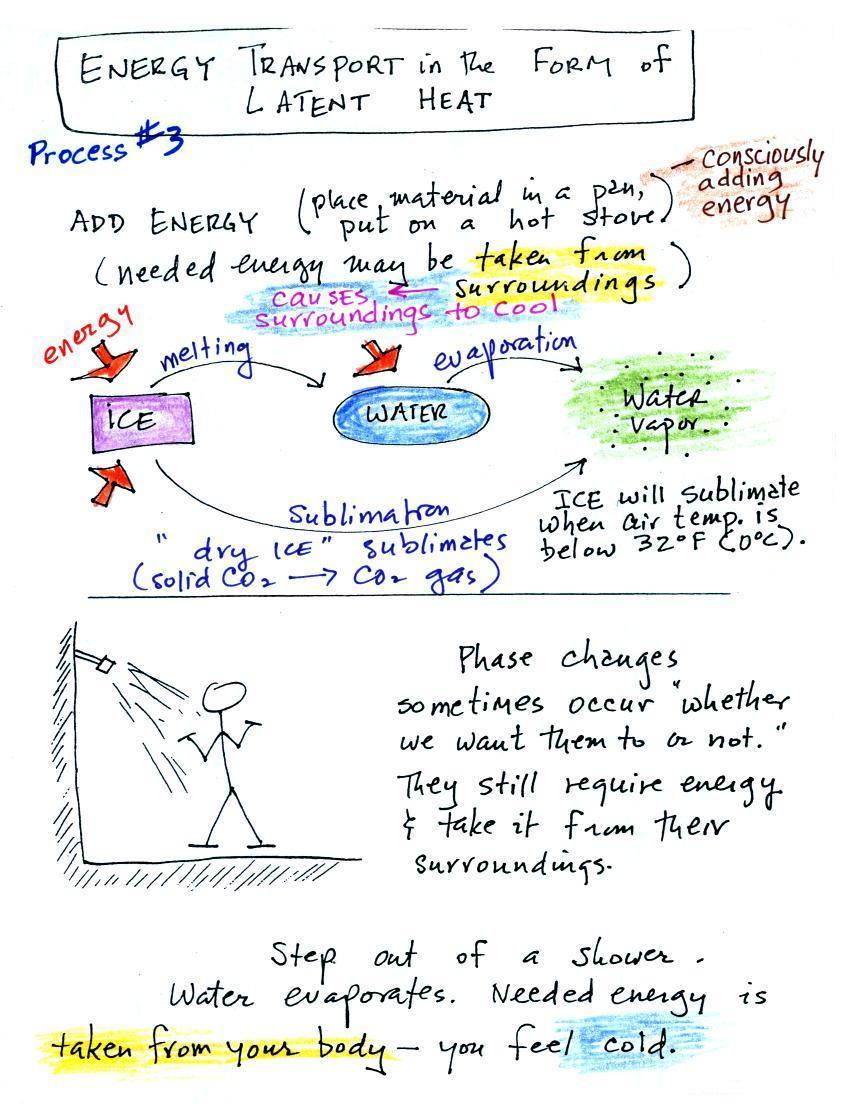 ENERGY TRANSPORT in the FORM of
LATENT HEAT
Process #3
ADD ENERGY (place material in a pan,
put on a hot stove)
— consciously
adding
energy
(needed energy may be taken from
surroundings)
causes
surroundings to cool
energy
melting
evaporation
ICE
WATER
Water
vapor
Sublimation
"dry ICE" sublimates
(solid CO₂ → CO₂ gas)
ICE will sublimate
when air temp. is
below 32°F (0°C).
Phase changes
sometimes occur "whether
we want them to or not."
They still require energy
& take it from their
surroundings.
Step out of a shower.
Water evaporates. Needed energy is
taken from your body — you feel cold.